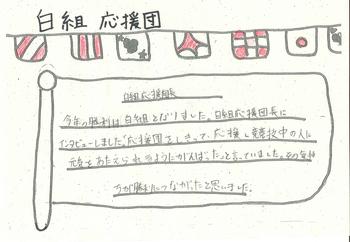 白組 応援団
白組応援団長
今年の勝利は白組となりました。白組応援団長に
インタビューしました。応援団をしきって、応援し競技中の人に
元気をあたえられるようにがんばったと言っていました。その気持
ちが勝利につながったと思いました。